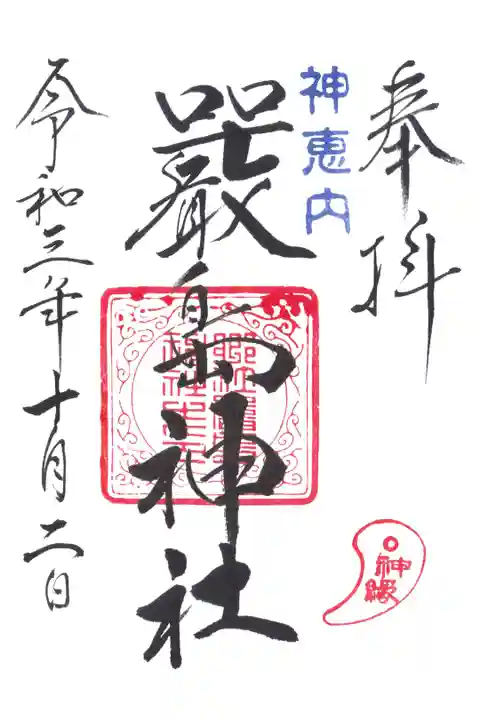 奉拝
神恵内
嚴島神社
令和三年十月二日
神縁